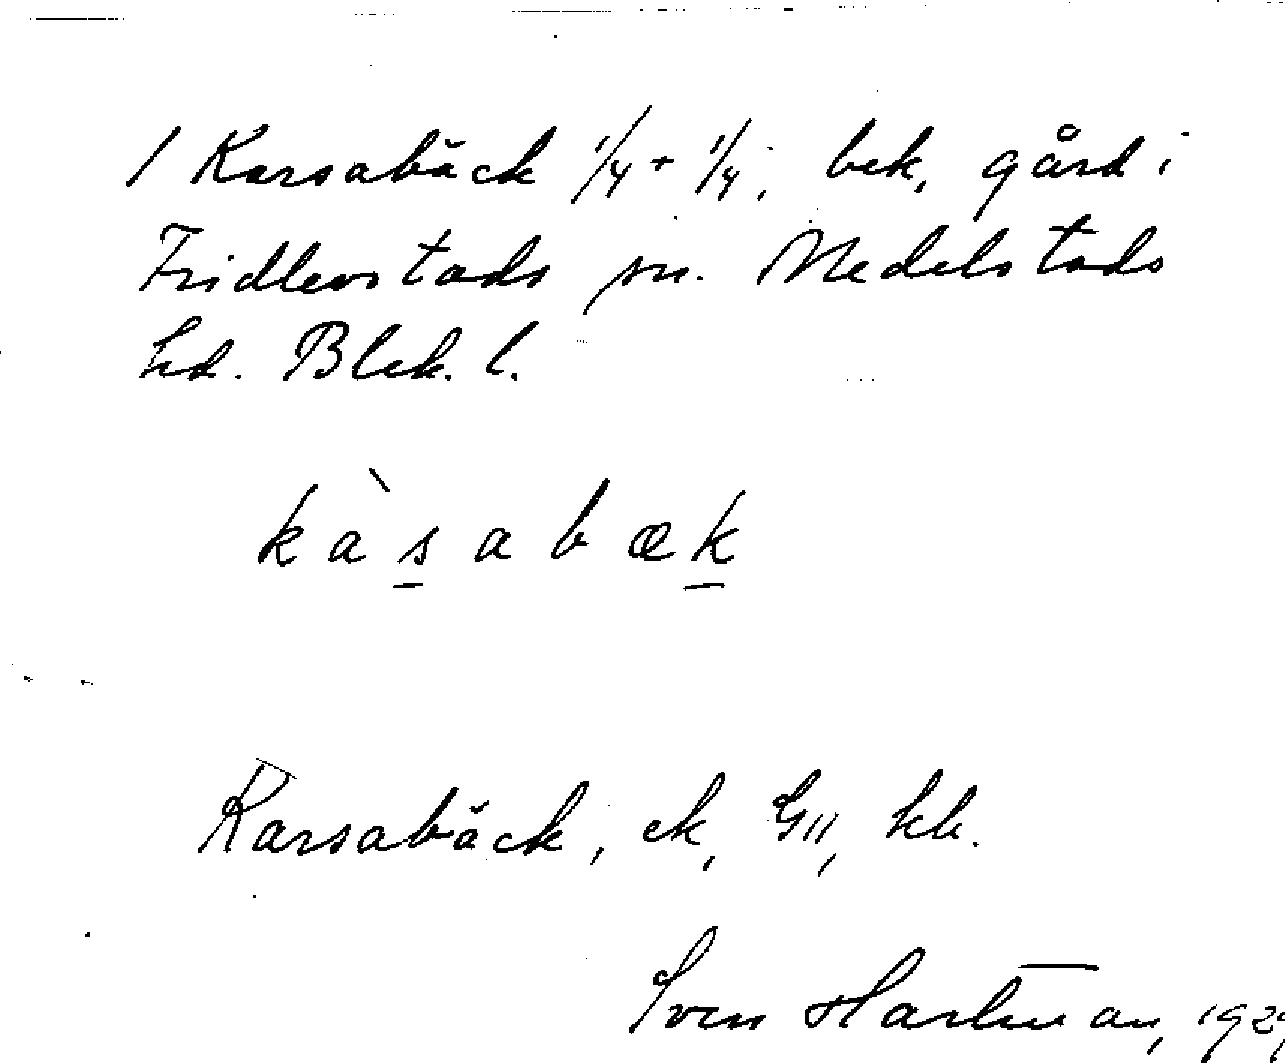 1 Karsabäck 1/4 + 1/4, bek, gård i
Fridlevstads sn. Medelstads
hd. Blek. l.
kàsabæk
Karsabäck, ek, GII, kk.
Sven Hartman,